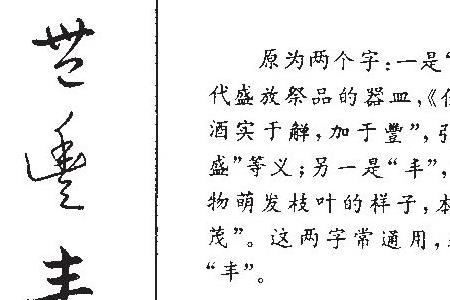 豐
丰
原为两个字:一是“
代盛放祭品的器皿,《
酒实于觯,加于豐”,引
盛”等义;另一是“丰”,
物萌发枝叶的样子,本
茂”。这两字常通用,
“丰”。